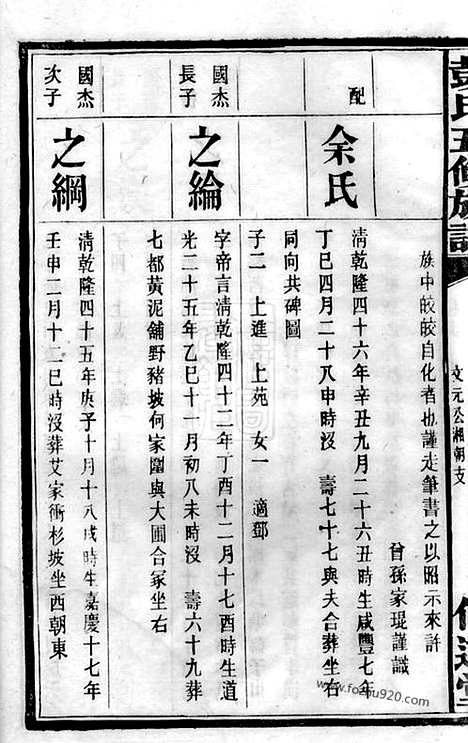 彭氏五修族譜
文元公湘朝支
族中皎皎自化者也謹走筆書之以昭示來許
曾孫家琨謹識
配
余氏
清乾隆四十六年辛丑九月二十六丑時生咸豐七年
丁巳四月二十八申時沒 壽七十七與夫合葬坐右
同向共碑圖
子二 上進 上苑 女一 適鄧
國杰
長子
之綸
字帝言清乾隆四十二年丁酉十二月十七酉時生道
光二十五年乙巳十月初八未時沒 壽六十九葬
七都黃泥舖野豬坡何家園與大圃合冢坐右
國杰
次子
之綱
清乾隆四十五年庚子十月十八戌時生嘉慶十七年
壬申二月十二巳時沒葬艾家衝杉坡坐酉朝東
www.foxpu920.com